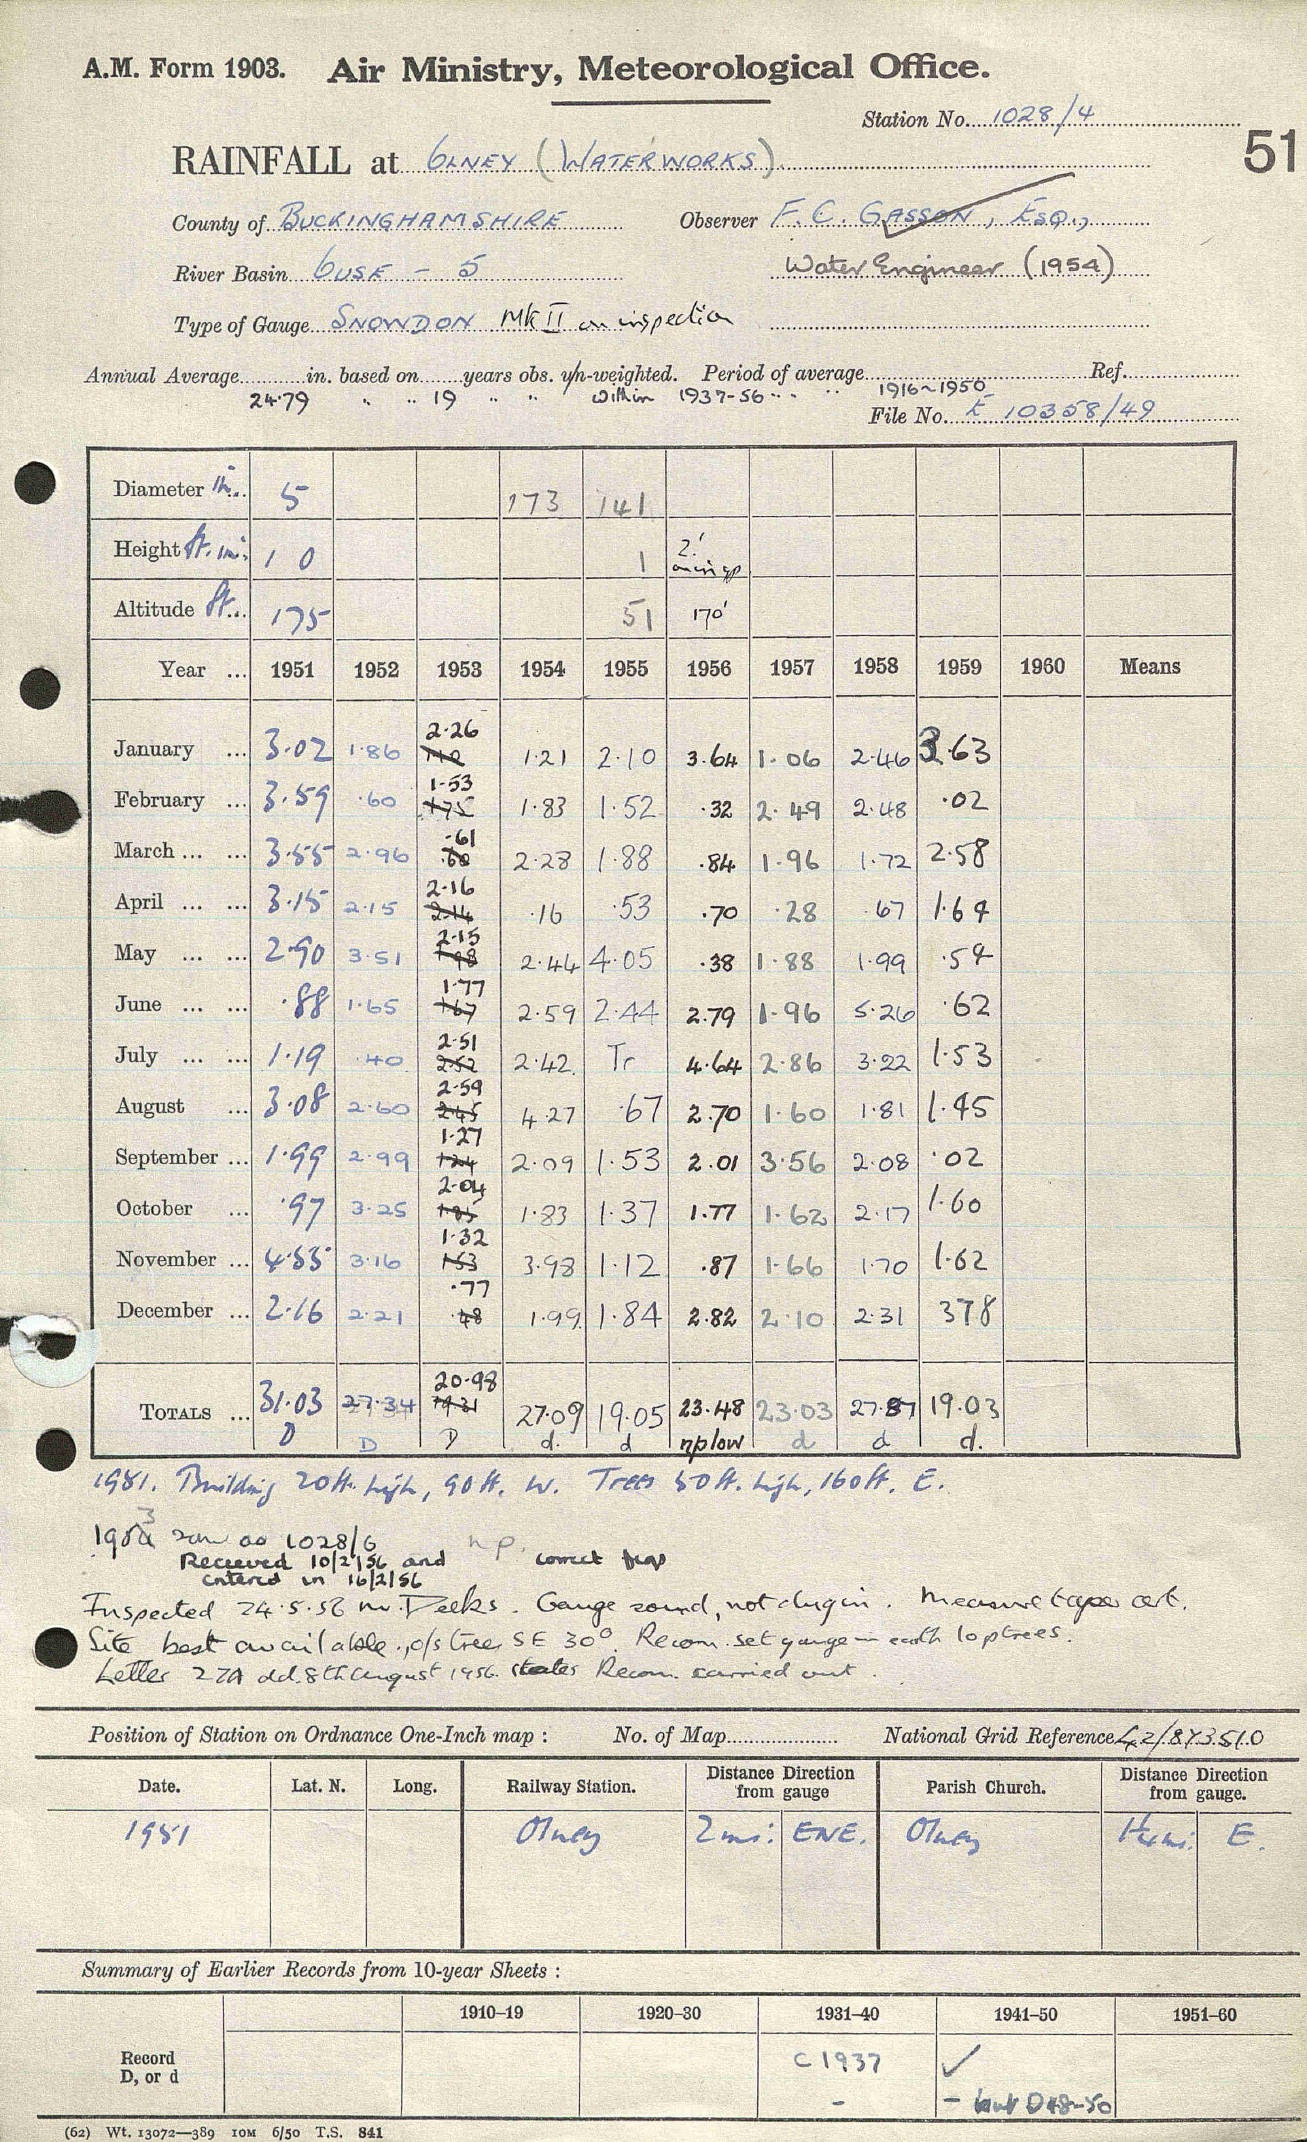 A.M. Form 1903. Air Ministry, Meteorological Office.
Station No. 1028/4
51
RAINFALL at OLNEY (WATERWORKS)
County of BUCKINGHAMSHIRE Observer F. C. GASSON, ESQ.,
River Basin OUSE - 5 Water Engineer (1954)
Type of Gauge SNOWDON Mk II on inspection
Annual Average in. based on years obs. un-weighted. Period of average 1916-1950 Ref.
24.79 " " 19 " " within 1937-56 " "
File No. E 10358/49
Diameter in. 5 173 141
Height ft. ins. 1 0 1 2'
Altitude ft. 175 51 170'
Year ... 1951 1952 1953 1954 1955 1956 1957 1958 1959 1960 Means
2.26
January ... 3.02 1.86 1.21 2.10 3.64 1.06 2.46 3.63
1.53
February ... 3.59 .60 1.75 1.83 1.52 .32 2.49 2.48 .02
.61
March ... ... 3.55 2.96 .60 2.28 1.88 .84 1.96 1.72 2.58
2.16
April ... ... 3.15 2.15 2.14 .16 .53 .70 .28 .67 1.64
2.15
May ... ... 2.90 3.51 1.98 2.44 4.05 .38 1.88 1.99 .54
1.77
June ... ... .88 1.65 1.67 2.59 2.44 2.79 1.96 5.26 .62
2.51
July ... ... 1.19 .40 2.52 2.42 Tr 4.64 2.86 3.22 1.53
2.59
August ... 3.08 2.60 2.45 4.27 .67 2.70 1.60 1.81 1.45
1.27
September ... 1.99 2.99 1.24 2.09 1.53 2.01 3.56 2.08 .02
2.04
October ... .97 3.25 1.85 1.83 1.37 1.77 1.62 2.17 1.60
1.32
November ... 4.55 3.16 1.53 3.98 1.12 .87 1.66 1.70 1.62
.77
December ... 2.16 2.21 .48 1.99 1.84 2.82 2.10 2.31 3 78
20.98
TOTALS ... 31.03 27.34 19.31 27.09 19.05 23.48 23.03 27.87 19.03
D D D d. d np low d d d.
1951. Building 20ft. high, 90ft. W. Trees 50ft. high, 160ft. E.
1953 same as 1028/6 n p.
Received 10/2/56 and correct
entered in 16/2/56
Inspected 24.5.56 Mr. Deeks. Gauge sound, not dug in. Measure tape cert.
Site best available, o/s trees SE 30°. Recom. set gauge in earth lop trees.
Letter 27A dd. 8th August 1956 states Recom. carried out.
Position of Station on Ordnance One-Inch map : No. of Map National Grid Reference 42/873510
Date. Lat. N. Long. Railway Station. Distance from gauge Direction Parish Church. Distance from gauge. Direction
1951 Olney 2 ms: ENE. Olney E.
Summary of Earlier Records from 10-year Sheets :
1910–19 1920–30 1931–40 1941–50 1951–60
Record C 1937 ✓
D, or d - - but D 48-50
(62) Wt. 13072—389 10M 6/50 T.S. 841